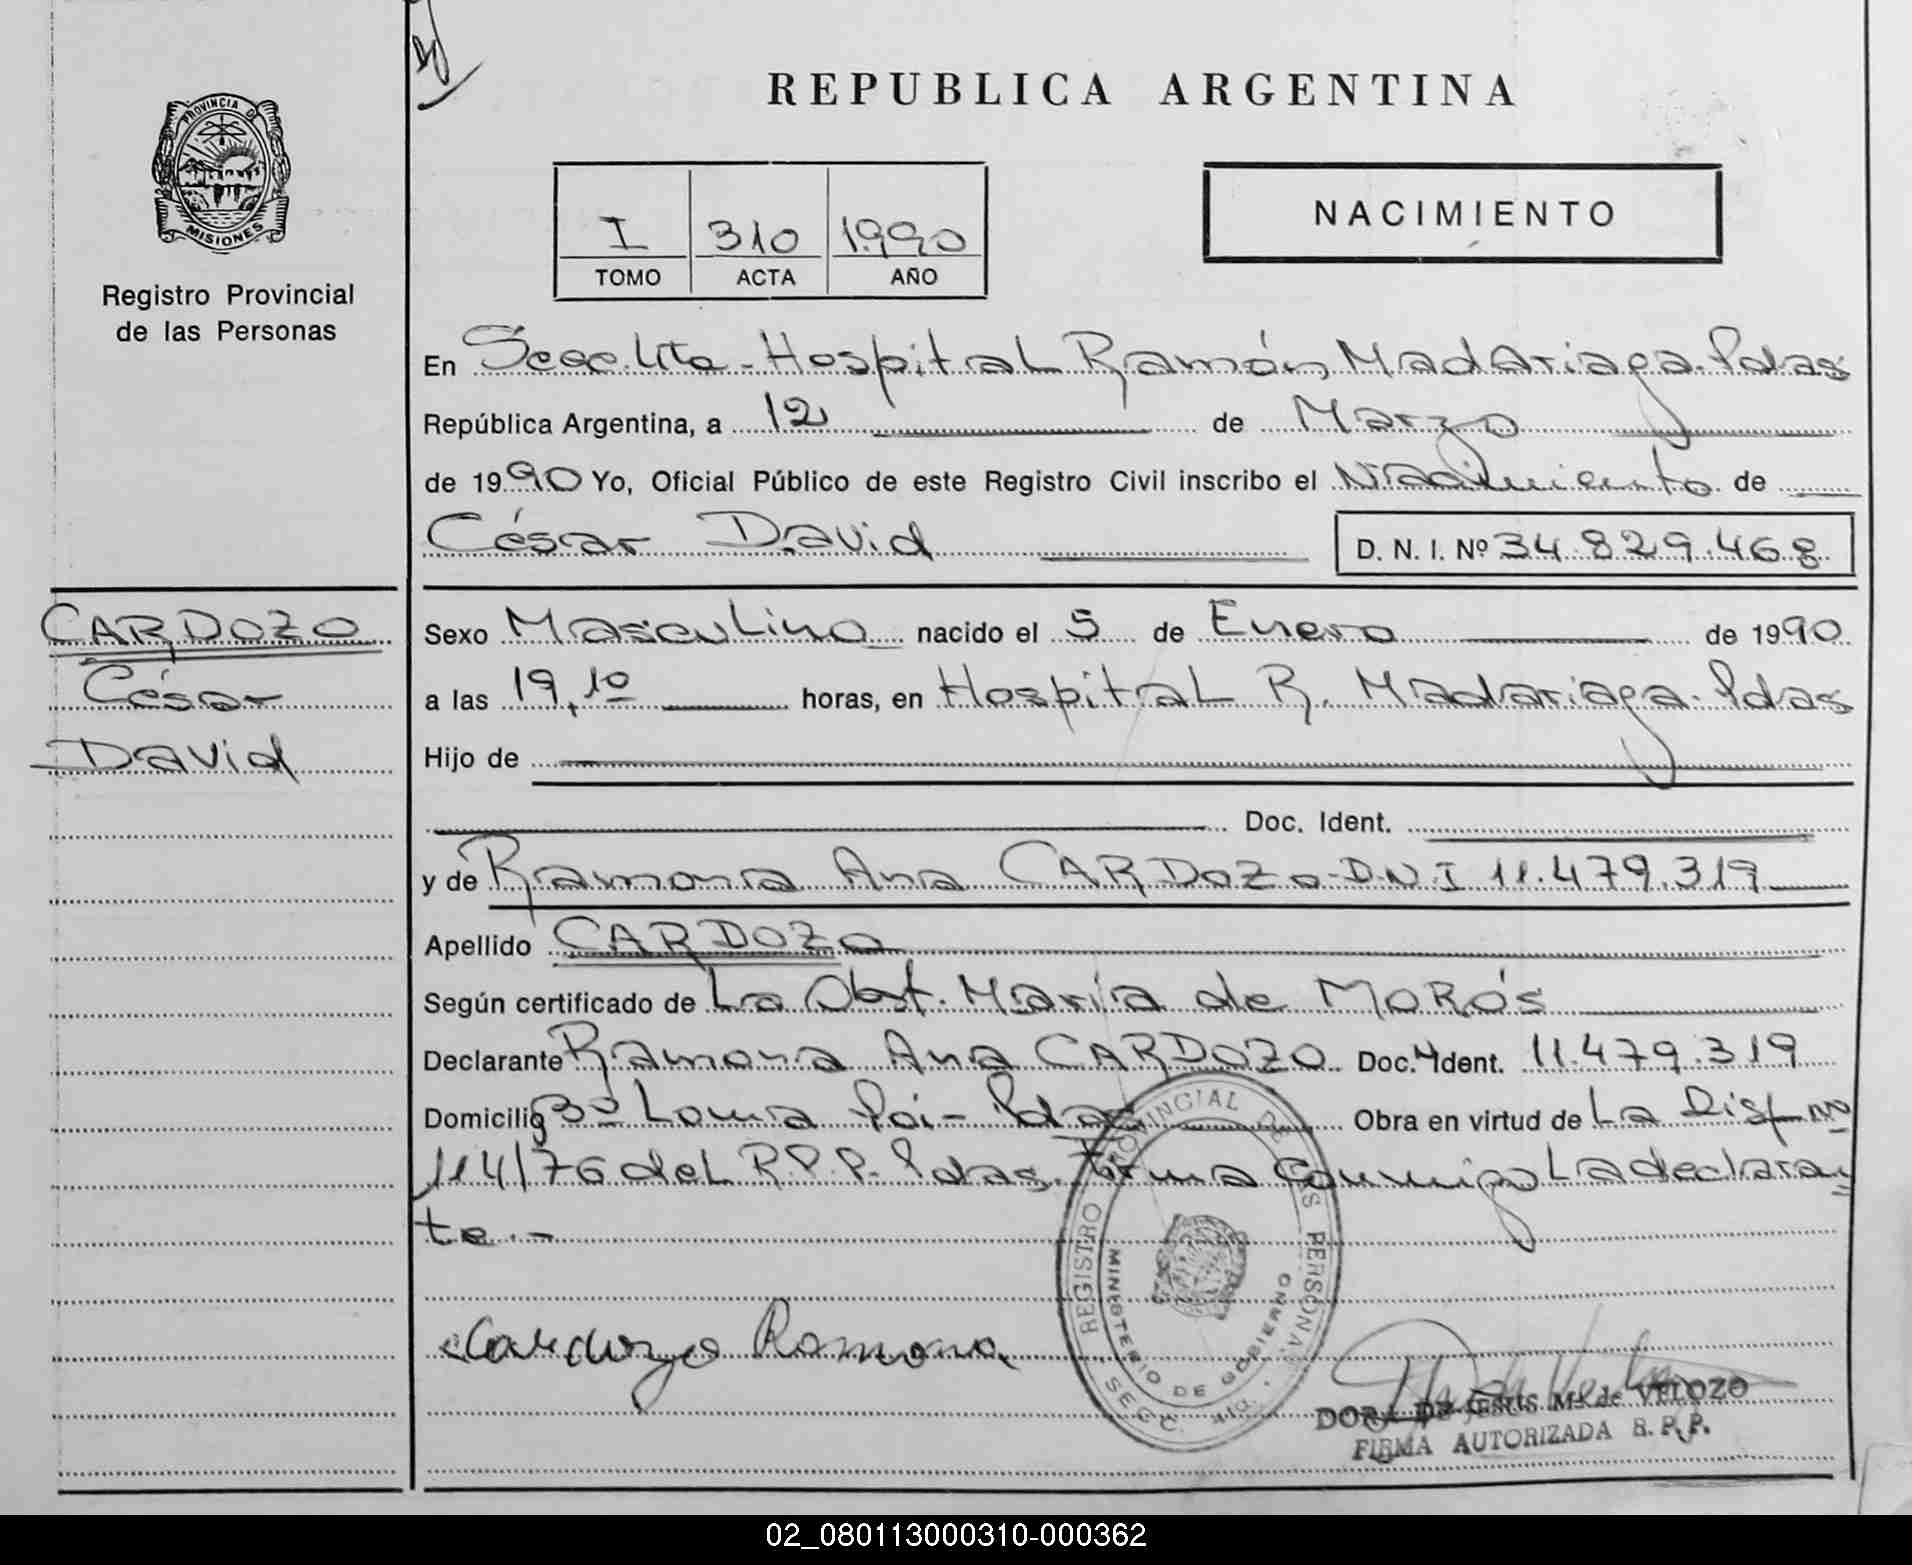 REPUBLICA ARGENTINA
PROVINCIA DE
MISIONES
Registro Provincial
de las Personas
I 310 1990
TOMO ACTA AÑO
NACIMIENTO
En Secc. 4ta - Hospital Ramón Madariaga. Pdas
República Argentina, a 12 de Marzo
de 1990 Yo, Oficial Público de este Registro Civil inscribo el Nacimiento de
César David D. N. I. Nº 34.829.468
CARDOZO
César
David
Sexo Masculino nacido el 5 de Enero de 1990
a las 19,10 horas, en Hospital R. Madariaga. Pdas
Hijo de
Doc. Ident.
y de Ramona Ana CARDOZO - D.N.I 11.479.319
Apellido CARDOZO
Según certificado de La Obst. María de MORÓS
Declarante Ramona Ana CARDOZO Doc. Ident. 11.479.319
Domicilio Bº Loma Poi - Pdas Obra en virtud de La Disp. Nº
114/76 del R.P.P. Pdas. Firma conmigo La declaran
te.-
Cardozo Ramona
REGISTRO PROVINCIAL DE LAS PERSONAS
MINISTERIO DE GOBIERNO
SECC. 4ta.
DORA DE JESUS Mª de VELOZO
FIRMA AUTORIZADA R. P. P.
02_080113000310-000362